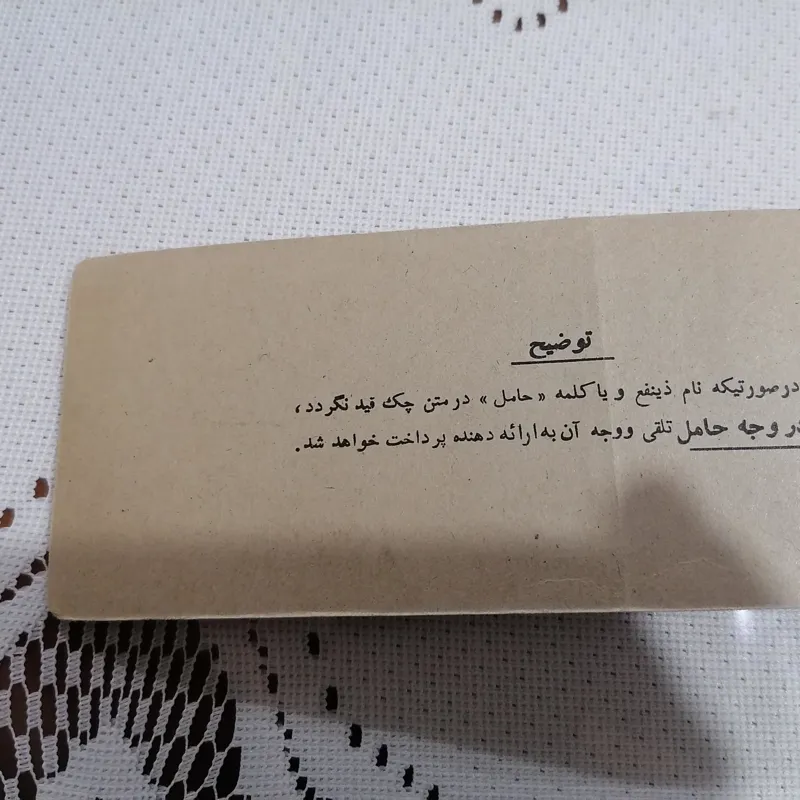 توضیح
درصورتیکه نام ذینفع و یا کلمه «حامل» در متن چک قید نگردد،
در وجه حامل تلقی و وجه آن به ارائه دهنده پرداخت خواهد شد.